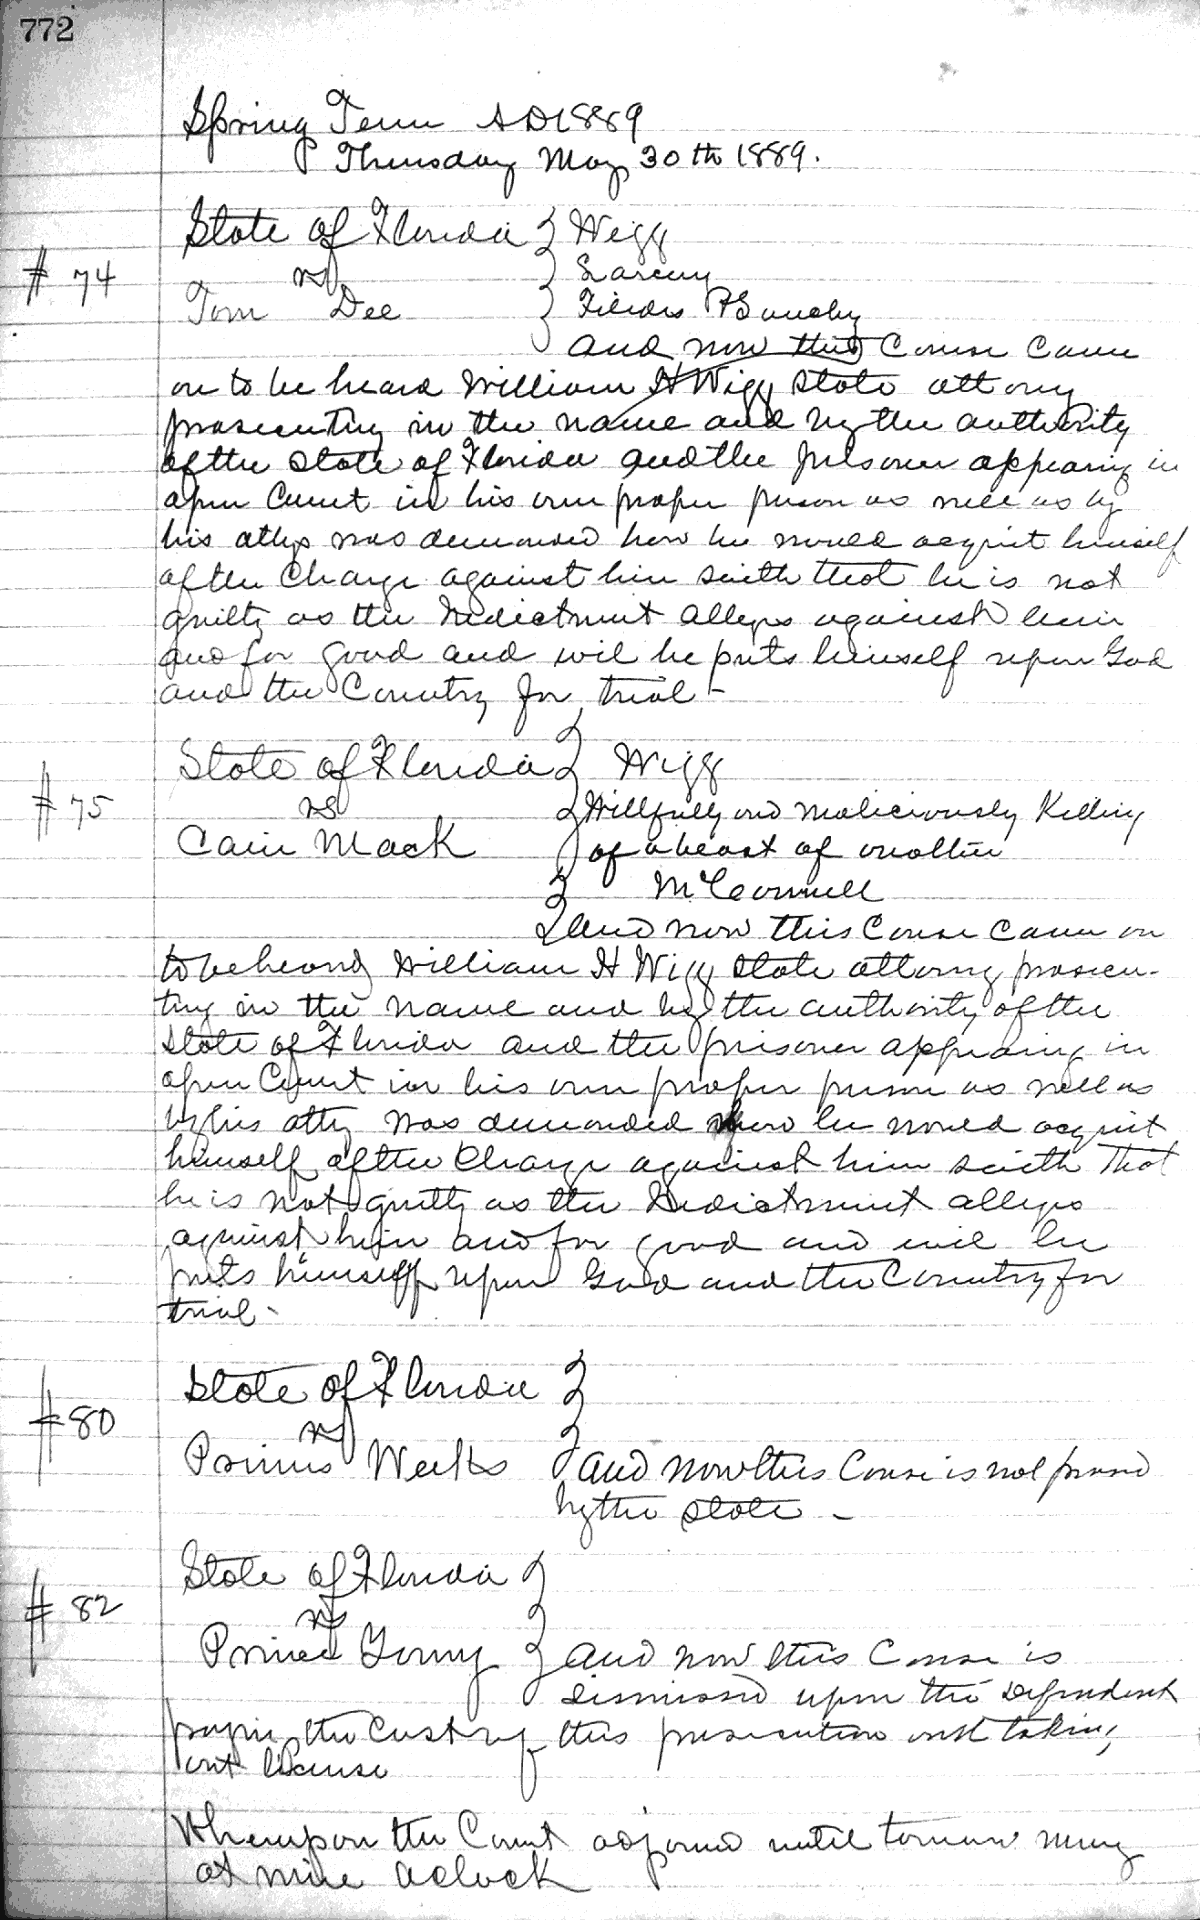 772
Spring Term AD 1889
Thursday May 30th 1889.
State of Florida Wigg
# 74 vs Larceny
Tom Dee
and now this Cause Came
on to be heard William H Wigg State attorny
prosecuting in the name and by the authority
of the State of Florida and the prisoner appearing in
open Court in his own proper person as well as by
his attys was demanded how he would acquit himself
of the Charge against him saith that he is not
guilty as the Indictment alleges against him
and for good and evil he puts himself upon God
and the Country for trial -
State of Florida Wigg
# 75 vs Willfully and Maliciously Killing
Cain Mack of a beast of another
McConnell
And now this Cause Came on
to be heard William H Wigg State attorny prosecu-
ting in the name and by the authority of the
State of Florida and the prisoner appearing in
open Court in his own proper person as well as
by his atty was demanded how he would acquit
himself of the Charge against him saith that
he is not guilty as the Indictment alleges
against him and for good and evil he
puts himself upon God and the Country for
trial -
State of Florida
# 80 vs
Primus Weeks and now this Cause is nol prossd
by the State -
State of Florida
# 82 vs
Prince and now this Cause is
dismissed upon the Defendant
paying the Cost of this prosecution and taking
out license
Whereupon the Court adjorned until
at nine Oclock